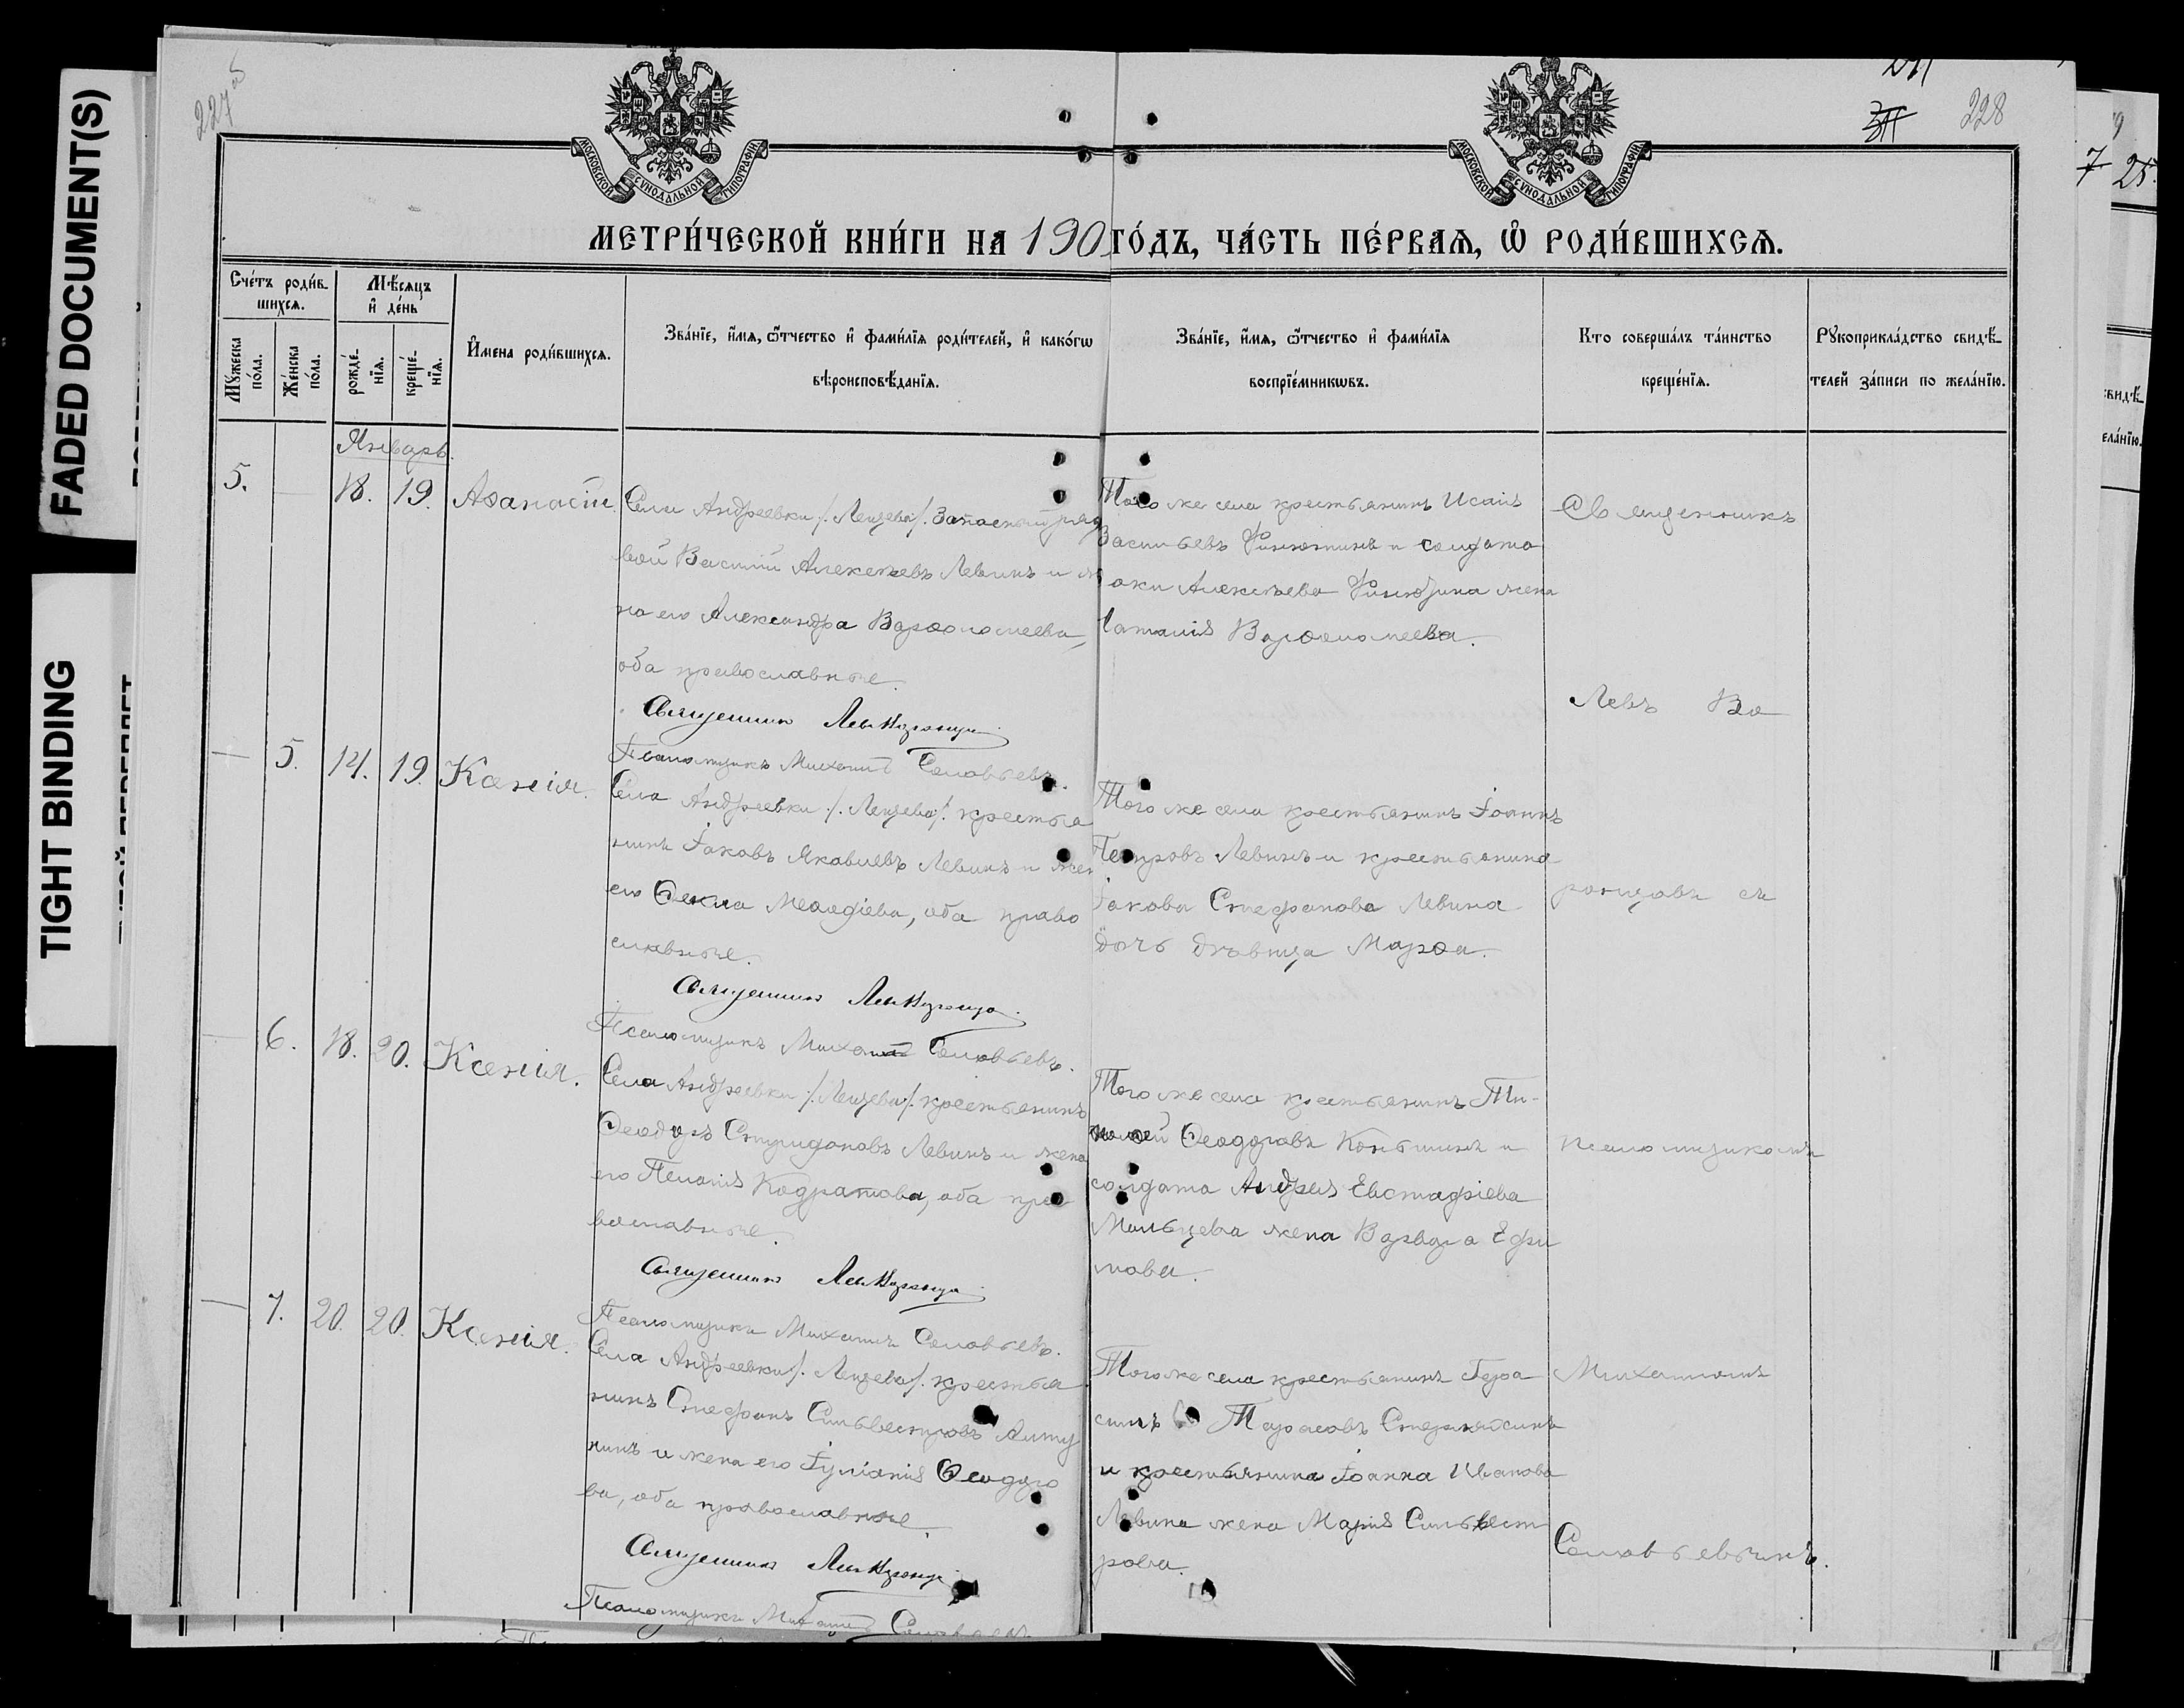 FADED DOCUMENT(S)
TIGHT BINDING
227 об
228
25.
МОСКОВСКОЙ СУНОДАЛЬНОЙ ТИПОГРАФІИ
МОСКОВСКОЙ СУНОДАЛЬНОЙ ТИПОГРАФІИ
МЕТРИ́ЧЕСКОЙ КНИ́ГИ НА 190 ГО́ДЪ, ЧА́СТЬ ПЕ́РВАѦ, Ѡ҆ РОДИ́ВШИХСѦ.
Сче́тъ роди́в-
шихсѧ.
Мꙋ́жеска
по́ла.
Же́нска
по́ла.
Мѣ́сѧцъ
и҆ де́нь
рожде́-
нїѧ.
креще́-
нїѧ.
И҆́мена роди́вшихсѧ.
Зва́нїе, и҆́мѧ, ѻ҆́тчество и҆ фами́лїѧ роди́телей, и҆ како́гѡ
вѣроисповѣ́данїѧ.
Зва́нїе, и҆́мѧ, ѻ҆́тчество и҆ фами́лїѧ
воспрїе́мникѡвъ.
Кто соверша́лъ та́инство
креще́нїѧ.
Рꙋкоприкла́дство свидѣ́-
телей за́писи по жела́нїю.
Январь.
5. — 18. 19. Аѳанасій
Села Андреевки /. Лещева /. Запасный рядо
вой Василій Алексѣевъ Левинъ и же
на его Александра Варѳоломеева,
оба православные.
Священникъ Левъ Воронцовъ
Псаломщикъ Михаилъ Соловьевъ.
Того же села крестьянинъ Исаія
Васильевъ Финютинъ и солдата
Алексѣева Финютина жена
Наталія Варѳоломеева.
— 5. 14. 19. Ксенія.
Села Андреевки /. Лещева /. крестья
нинъ Іаковъ Яковлевъ Левинъ и жен
его Ѳекла Меѳодіева, оба право
славные.
Священникъ Левъ Воронцовъ
Псаломщикъ Михаилъ Соловьевъ.
Того же села крестьянинъ Іоаннъ
Петровъ Левинъ и крестьянина
Іакова Стефанова Левина
дочь дѣвица Марѳа.
— 6. 18. 20. Ксенія.
Села Андреевки /. Лещева /. крестьянинъ
Ѳеодоръ Спиридоновъ Левинъ и жена
его Пелагія Кодратова, оба пра
вославные.
Священникъ Левъ Воронцовъ
Псаломщикъ Михаилъ Соловьевъ.
Того же села крестьянинъ Ти-
моѳей Ѳеодоровъ Коньшинъ и
солдата Андрея Евстафіева
Мальцева жена Варвара Ефи
мова.
— 7. 20. 20. Ксенія.
Села Андреевки /. Лещева /. крестья
нинъ Стефанъ Сильвестровъ Алту
нинъ и жена его Іуліанія Ѳеодоро
ва, оба православные.
Священникъ Левъ Воронцовъ
Псаломщикъ Михаилъ Соловьевъ
Того же села крестьянинъ Гера
симъ Тарасовъ
и крестьянина Іоанна Иванова
Левина жена Марія Сильвест
рова.
Священникъ
Левъ Во
ронцовъ съ
псаломщикомъ
Михаиломъ
Соловьевымъ.